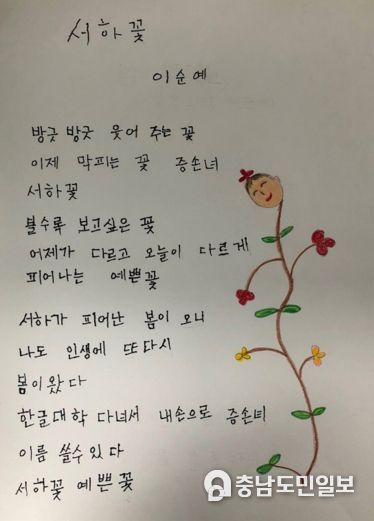 서하꽃
이순예
방긋 방긋 웃어 주는 꽃
이제 막피는 꽃 증손녀
서하꽃
볼수록 보고싶은 꽃
어제가 다르고 오늘이 다르게
피어나는 예쁜꽃
서하가 피어난 봄이 오니
나도 인생에 또다시
봄이왔다
한글대학 다녀서 내손으로 증손녀
이름 쓸수있다
서하꽃 예쁜꽃
충남도민일보